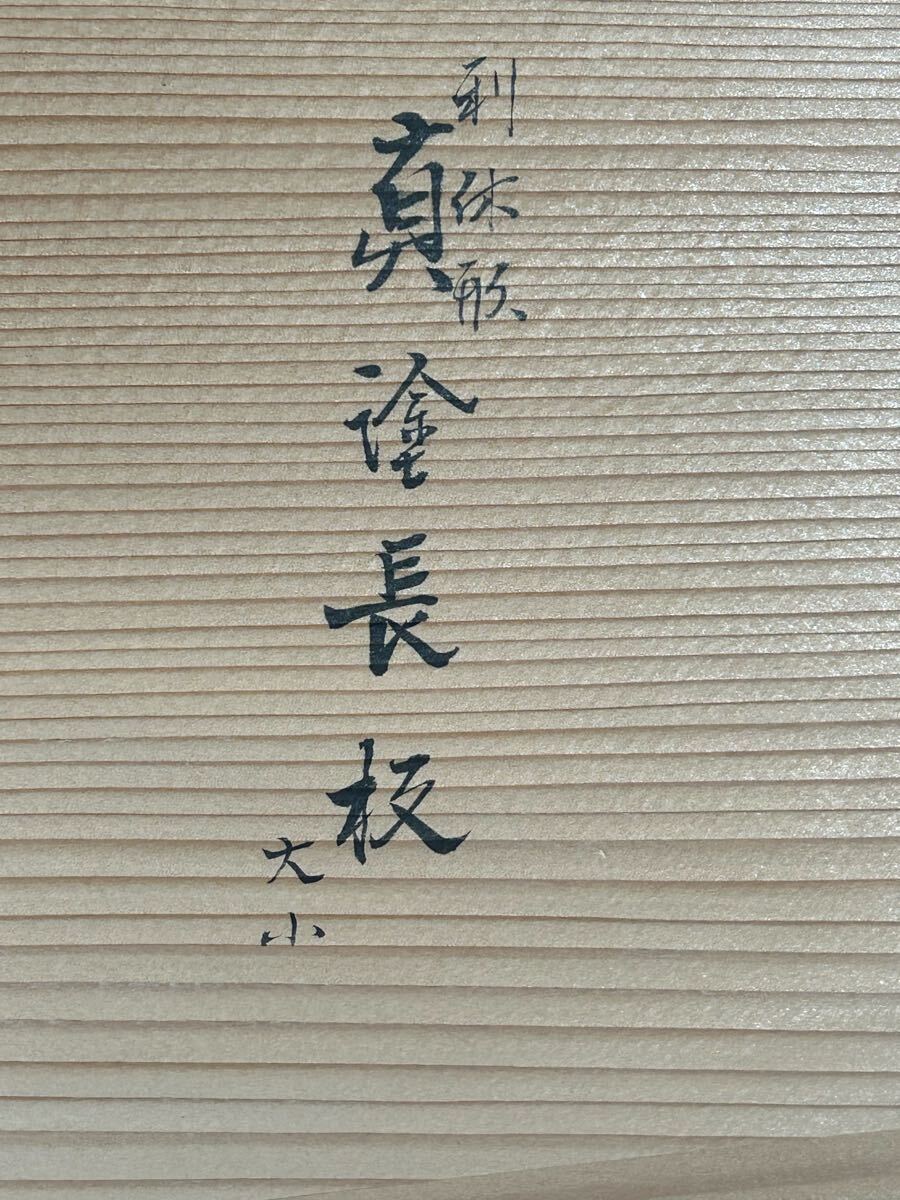 利休形
真塗長板
大小